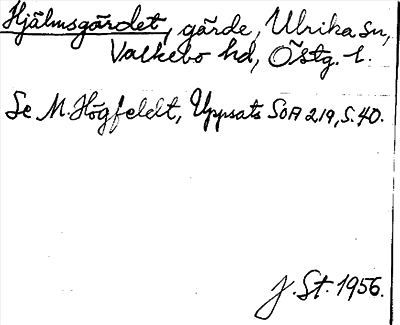 Hjälmsgärdet, gärde, Ulrika sn,
Valkebo hd, Östg. l.
Se M. Högfeldt, Uppsats SOA 219, S. 40.
J. St. 1956.